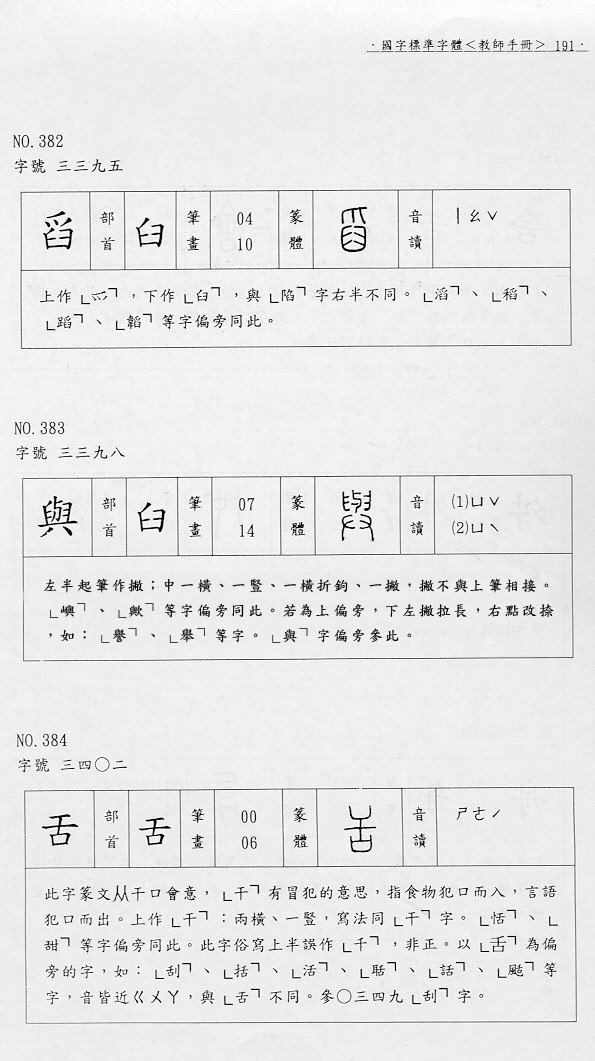 ·國字標準字體＜教師手冊＞ 191·
NO.382
字號 三三九五
舀 部首 臼 筆畫 04 10 篆體 音讀 ㄧㄠˇ
上作「爫」，下作「臼」，與「陷」字右半不同。「滔」、「稻」、
「蹈」、「韜」等字偏旁同此。
NO.383
字號 三三九八
與 部首 臼 筆畫 07 14 篆體 音讀 (1)ㄩˇ (2)ㄩˋ
左半起筆作撇；中一橫、一豎、一橫折鉤、一撇，撇不與上筆相接。
「嶼」、「歟」等字偏旁同此。若為上偏旁，下左撇拉長，右點改捺
，如：「譽」、「舉」等字。「與」字偏旁參此。
NO.384
字號 三四〇二
舌 部首 舌 筆畫 00 06 篆體 音讀 ㄕㄜˊ
此字篆文从干口會意，「干」有冒犯的意思，指食物犯口而入，言語
犯口而出。上作「干」：兩橫、一豎，寫法同「干」字。「恬」、「
甜」等字偏旁同此。此字俗寫上半誤作「千」，非正。以「舌」為偏
旁的字，如：「刮」、「括」、「活」、「聒」、「話」、「颳」等
字，音皆近ㄍㄨㄚ，與「舌」不同。參〇三四九「刮」字。